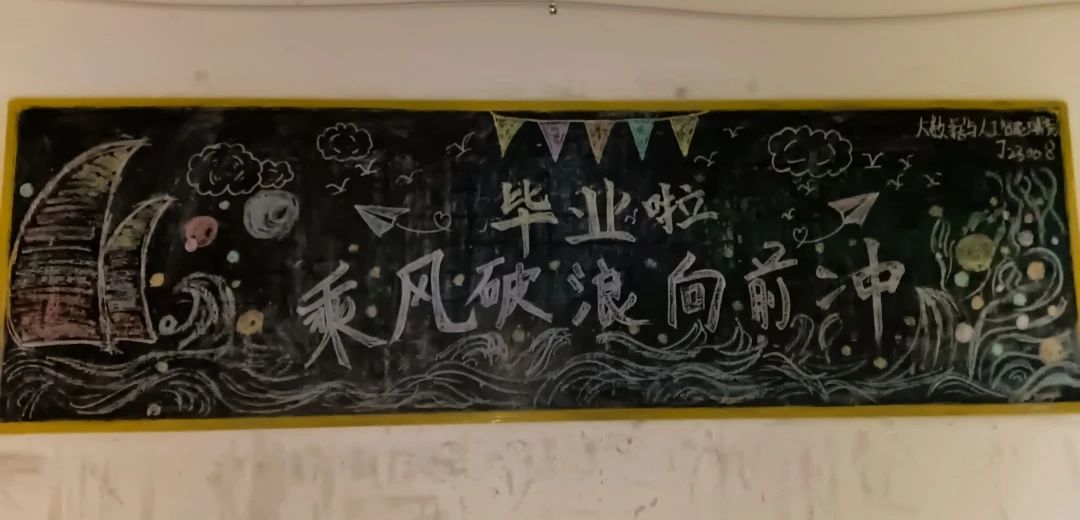 大数据与人工智能学院
J23008
毕业啦
乘风破浪向前冲